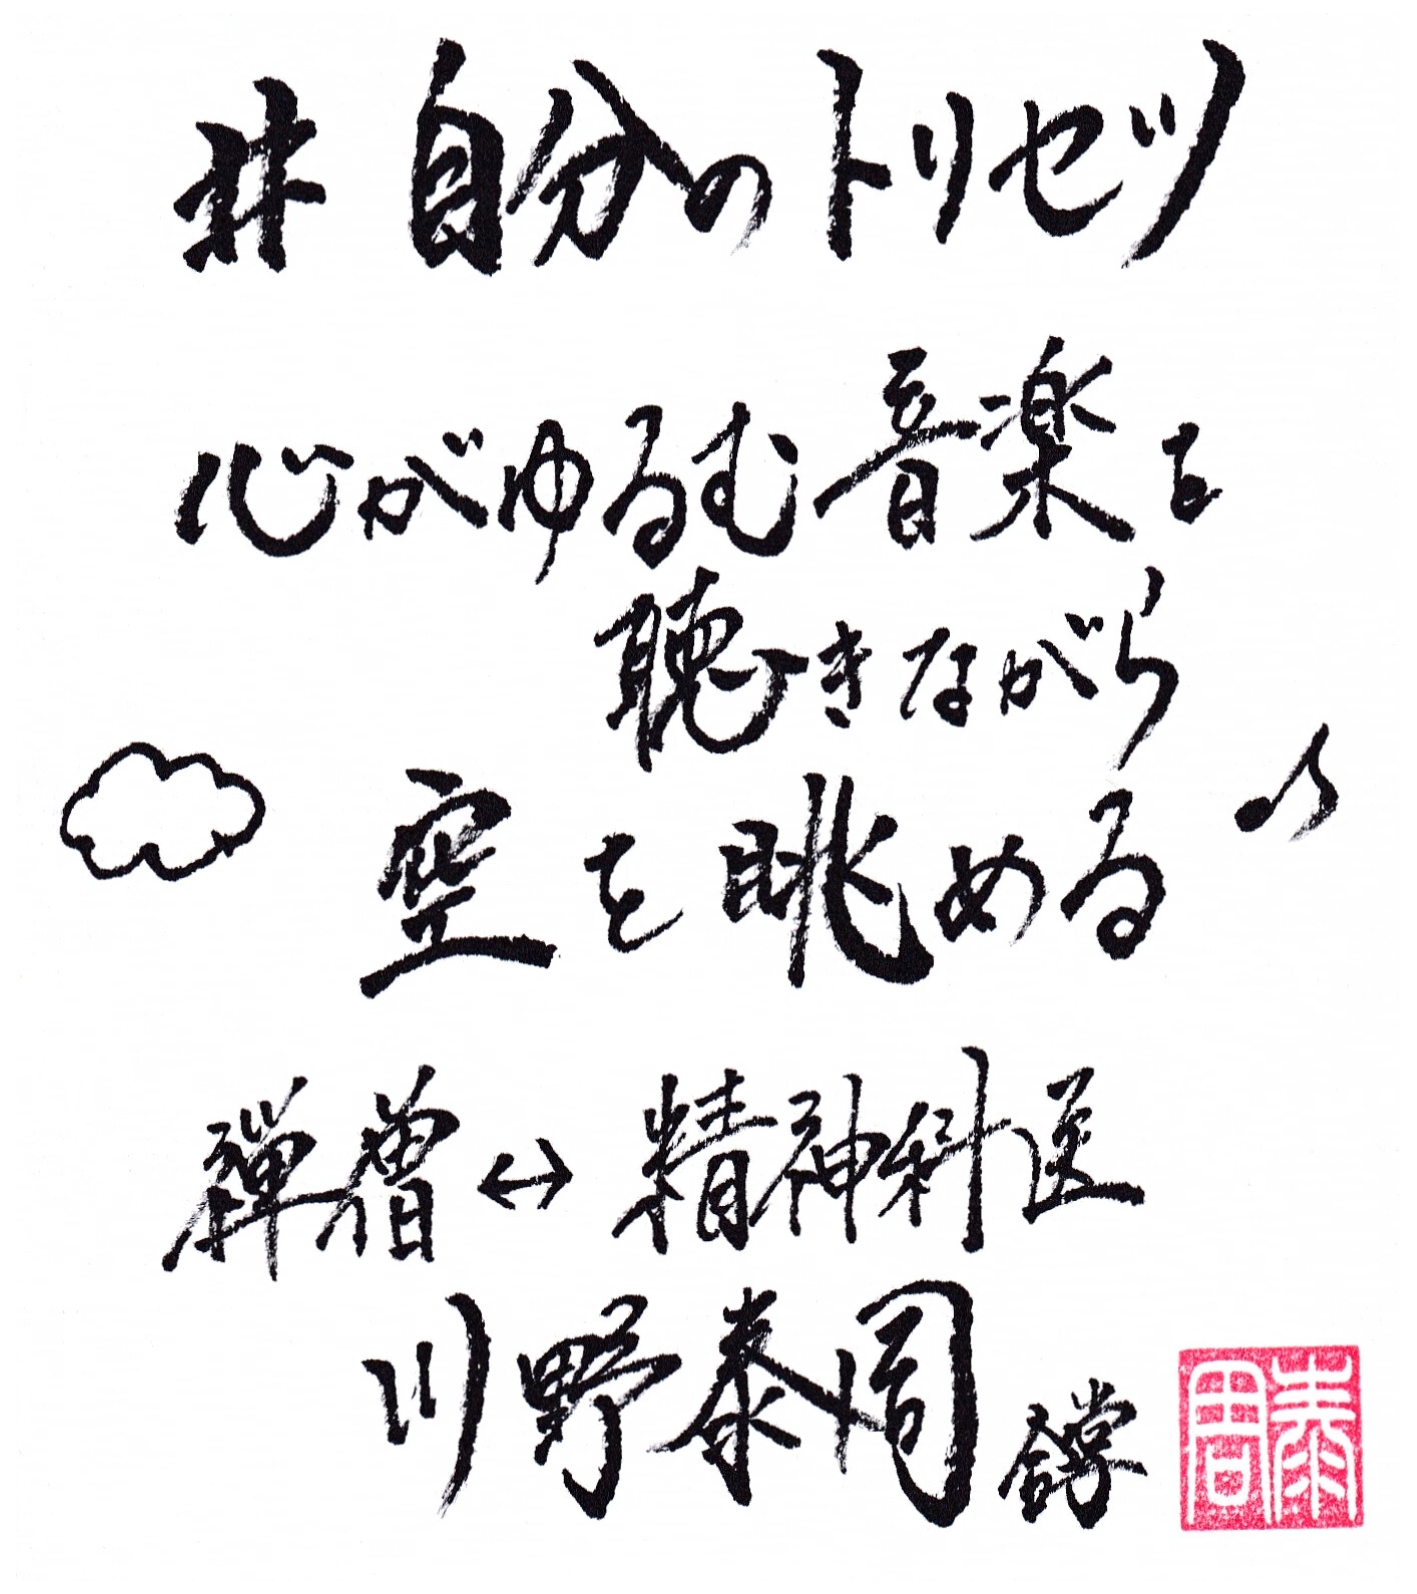 # 自分のトリセツ
心がゆるむ音楽を
聴きながら
空を眺める♪
禅僧↔精神科医
川野泰周 合掌
泰周